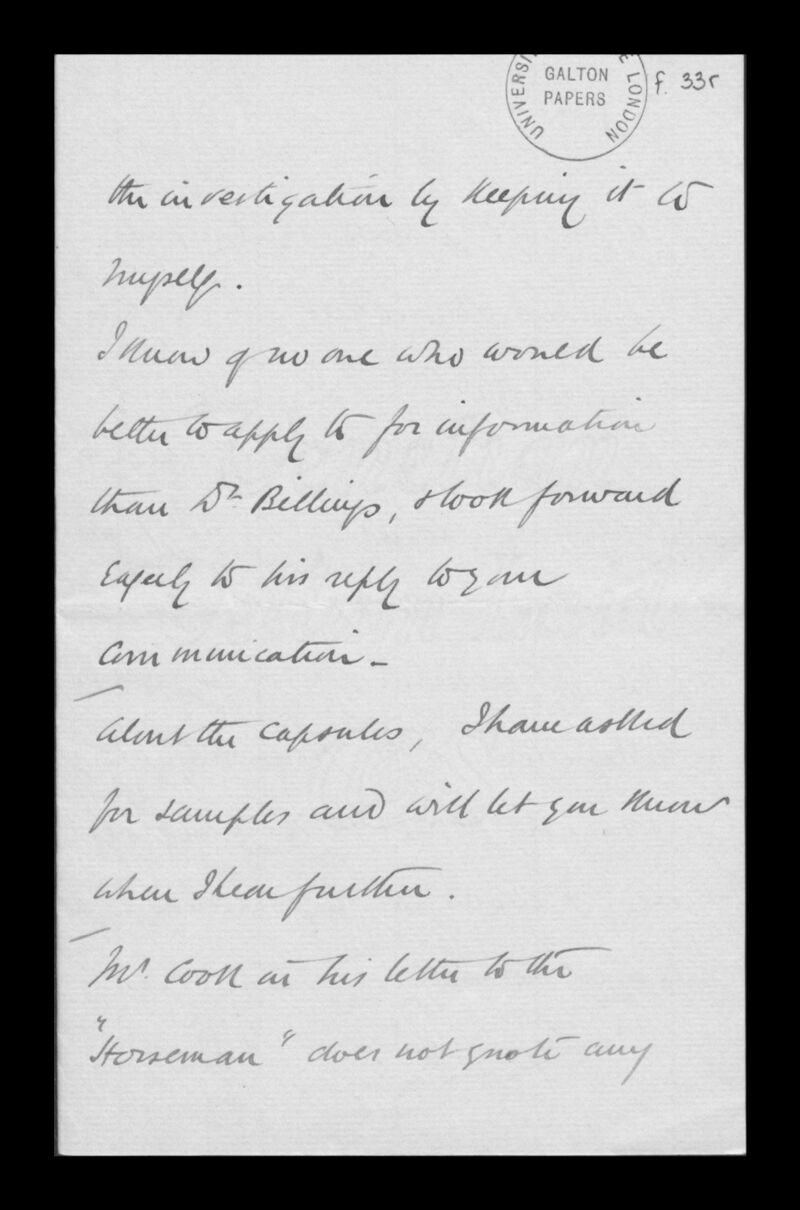 UNIVERSI E LONDON
GALTON
PAPERS
f. 33r
the investigation by keeping it to
myself.
I know of no one who would be
better to apply to for information
than Dr Billings, & look forward
eagerly to his reply to your
communication -
About the capsules, I have asked
for samples and will let you know
when I hear further.
Mr. Cook in his letter to the
"Horseman" does not quote any